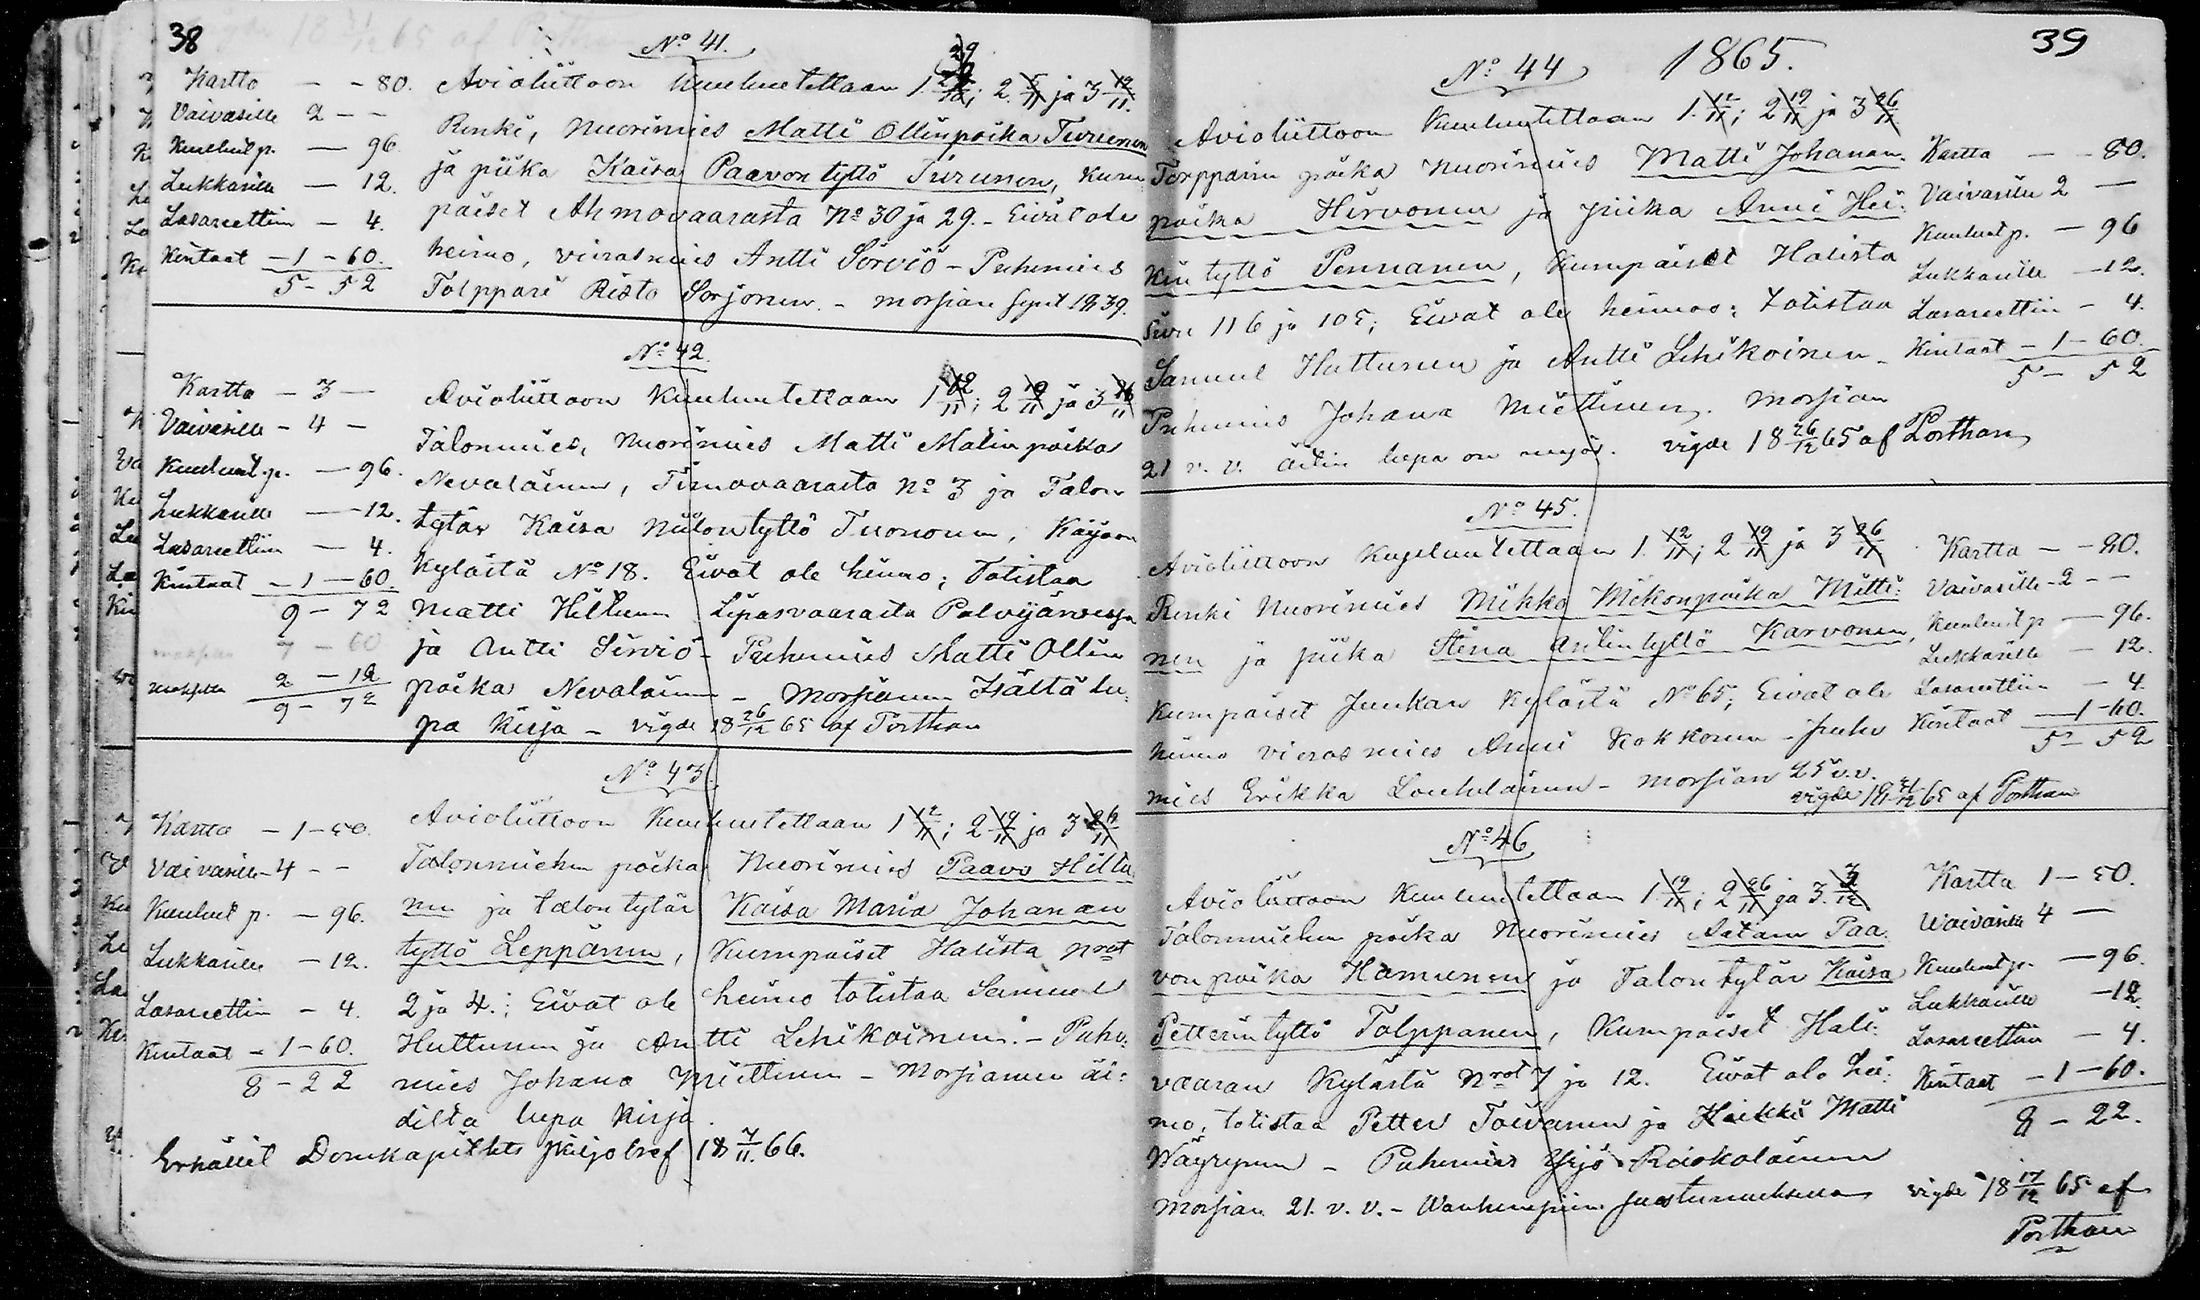 38
No 41.
Kartta - - 80.
Vaivasille 2 - -
Kuulut p. - 96
Lukkarille - 12.
Lasarettiin - 4.
Kintaat - 1 - 60.
5 - 52
Avioliittoon kuulutetaan 1 29/10; 2 5/11 ja 3 12/11.
Renki, Nuorimies Matti Ollinpoika Turunen
ja piika Kaisa Paavontyttö Turunen, kum
paiset Ahmovaarasta No 30 ja 29. - Eivät ole
heimo, vierasmies Antti Sirviö - Puhemies
Tolppari Risto Sorjonen. - morsian synt 1839.
No 42.
Kartta - 3 -
Vaivasille - 4 -
Kuulut p. - 96.
Lukkarille - 12.
Lasarettiin - 4.
Kintaat - 1 - 60.
9 - 72
7 - 60
2 - 12
9 - 72
Avioliittoon kuulutetaan 1 12/11; 2 19/11 ja 3 26/11
Talonmies, Nuorimies Matti Matinpoika
Nevalainen, Timovaarasta No 3 ja Talon
tytär Kaisa Niilontyttö Tuononen,
kylästä No 18. Eivät ole heimo; Totistaa
Matti Hiltunen Liparvaarasta Polvijärvessä
ja Antti Sirviö - Puhemies Matti Ollin
poika Nevalainen - Morsiamen Isältä lu-
pa kirja - vigde 18 26/12 65 af Porthan
No 43.
Kartta - 1 - 50.
Vaivasille - 4 - -
Kuulut p. - 96.
Lukkarille - 12.
Lasarettiin - 4.
Kintaat - 1 - 60.
8 - 22
Avioliittoon kuulutetaan 1 12/11; 2 19/11 ja 3 26/11
Talonmiehen poika Nuorimies Paavo Hiltu
nen ja talon tytär Kaisa Maria Johanan
tyttö Leppänen, kumpaiset Halista Nrot
2 ja 4.; Eivät ole heimo totistaa Samuel
Huttunen ja Antti Lehikoinen. - Puhe-
mies Johana Miettinen - Morsiamen äi-
diltä lupa kirja.
Erhållit Domkapitlets skiljobref 18 7/11 66.
39
1865.
No 44
Avioliittoon kuulutetaan 1. 12/11; 2 19/11 ja 3 26/11
Torpparin poika Nuorimies Matti Johanan-
poika Hirvonen ja piika Anni Hei-
kin tyttö Pennanen, kumpaiset Halista
Sivu 116 ja 105; Eivät ole heimoo; totistaa
Samuel Huttunen ja Antti Lehikoinen -
Puhemies Johana Miettinen. morsian
21 v. v. äitin lupa on myös. vigde 18 26/12 65 af Porthan
Kartta - - 80.
Vaivasille 2 -
Kuulut p. - 96
Lukkarille - 12.
Lasarettiin - 4.
Kintaat - 1 - 60.
5 - 52
No 45.
Avioliittoon kuulutetaan 1. 12/11; 2 19/11 ja 3 26/11
Renki Nuorimies Mikko Mikonpoika Mitti-
nen ja piika Stina Antintyttö Karvonen,
kumpaiset Juukan kylästä No 65; Eivät ole
heimo vierasmies Anni Kokkonen - puhe
mies Erikka Louhelainen - morsian 25 v.v.
vigde 18 31/12 65 af Porthan
Kartta - - 80.
Vaivasille - 2 - -
Kuulut p - 96.
Lukkarille - 12.
Lasarettiin - 4.
Kintaat - 1 - 60.
5 - 52
No 46
Avioliittoon kuulutetaan 1. 19/11; 2 26/11 ja 3. 3/12
Talonmiehen poika Nuorimies Aatam Paa-
vonpoika Hamunen ja Talon tytär Kaisa
Petterintyttö Tolppanen, kumpaiset Hali-
vaaran kylästä Nrot 7 ja 12. Eivät ole hei-
mo, totistaa Petter Toivanen ja Heikki Matti
Wäyrynen - Puhemies Yrjö Räisköläinen
morsian 21. v. v. - Wanhempiin suostumuksella
vigde 18 17/12 65 af
Porthan
Kartta 1 - 50.
Waivasille 4 -
Kuulut p. - 96.
Lukkarille - 12.
Lasarettiin - 4.
Kintaat - 1 - 60.
8 - 22.